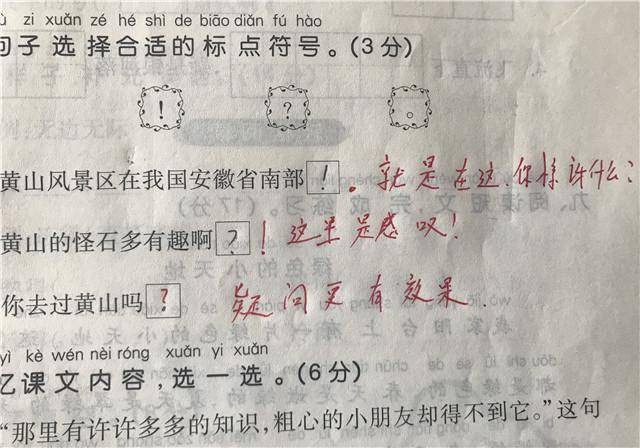 zì xuǎn zé hé shì de biāo diǎn fú hào
句子选择合适的标点符号。(3分)
! ? 。
黄山风景区在我国安徽省南部! 。就是在这,你惊讶什么?
黄山的怪石多有趣啊? !这里是感叹!
你去过黄山吗? 疑问更有效果.
yì kè wén nèi róng xuǎn yi xuǎn
忆课文内容,选一选。(6分)
“那里有许许多多的知识,粗心的小朋友却得不到它。”这句